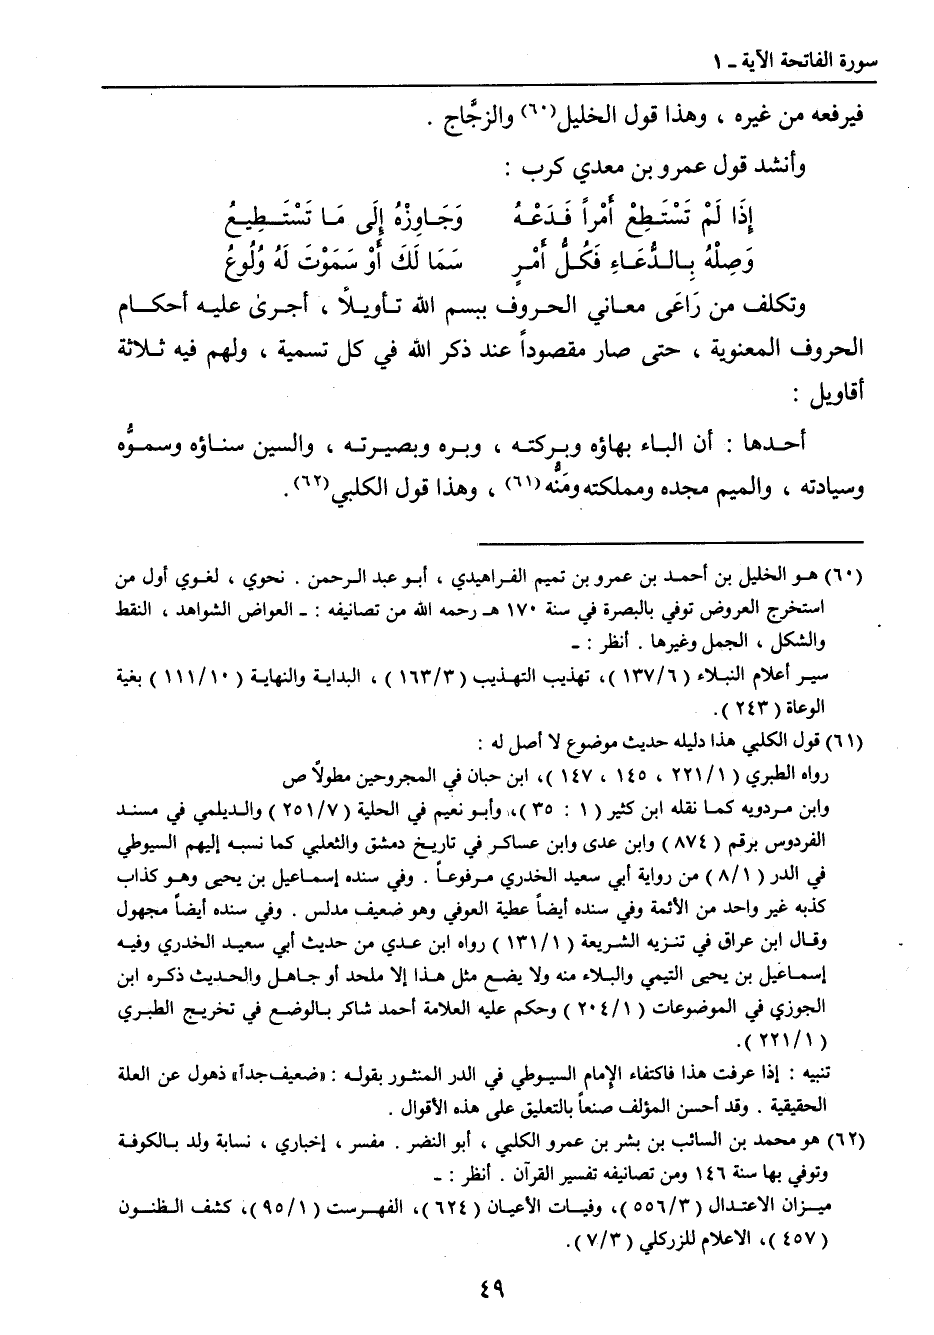 سورة الفاتحة الآية ـ ١
فيرفعه من غيره ، وهذا قول الخليل(٦٠) والزجَّاج .
وأنشد قول عمرو بن معدي كرب :
إِذَا لَمْ تَسْتَطِعْ أَمْراً فَدَعْهُ وَجَاوِزْهُ إِلَى مَا تَسْتَطِيعُ
وَصِلْهُ بِالدُّعَاءِ فَكُلُّ أَمْرٍ سَمَا لَكَ أَوْ سَمَوْتَ لَهُ وُلُوعُ
وتكلف من رَاعَى معاني الحروف ببسم الله تأويلاً ، أجرىٰ عليه أحكام
الحروف المعنوية ، حتى صار مقصوداً عند ذكر الله في كل تسمية ، ولهم فيه ثلاثة
أقاويل :
أحدها : أن الباء بهاؤه وبركته ، وبره وبصيرته ، والسين سناؤه وسموُّه
وسيادته ، والميم مجده ومملكته ومَنُّه(٦١) ، وهذا قول الكلبي(٦٢).
(٦٠) هو الخليل بن أحمد بن عمرو بن تميم الفراهيدي ، أبو عبد الرحمن . نحوي ، لغوي أول من
استخرج العروض توفي بالبصرة في سنة ١٧٠ هـ رحمه الله من تصانيفه : ـ العواض الشواهد ، النقط
والشكل ، الجمل وغيرها . أنظر : ـ
سير أعلام النبلاء ( ١٣٧/٦ )، تهذيب التهذيب ( ١٦٣/٣ ) ، البداية والنهاية ( ١١١/١٠ ) بغية
الوعاة ( ٢٤٣ ).
(٦١) قول الكلبي هذا دليله حديث موضوع لا أصل له :
رواه الطبري ( ٢٢١/١ ، ١٤٥ ، ١٤٧ )، ابن حبان في المجروحين مطولاً ص
وابن مردويه كما نقله ابن كثير ( ١ : ٣٥ )، وأبو نعيم في الحلية ( ٢٥١/٧ ) والديلمي في مسند
الفردوس برقم ( ٨٧٤ ) وابن عدى وابن عساكر في تاريخ دمشق والثعلبي كما نسبه إليهم السيوطي
في الدر ( ٨/١ ) من رواية أبي سعيد الخدري مرفوعاً . وفي سنده إسماعيل بن يحيى وهو كذاب
كذبه غير واحد من الأئمة وفي سنده أيضاً عطية العوفي وهو ضعيف مدلس . وفي سنده أيضاً مجهول
وقال ابن عراق في تنزيه الشريعة ( ١٣١/١ ) رواه ابن عدي من حديث أبي سعيد الخدري وفيه
إسماعيل بن يحيى التيمي والبلاء منه ولا يضع مثل هذا إلا ملحد أو جاهل والحديث ذكره ابن
الجوزي في الموضوعات ( ٢٠٤/١ ) وحكم عليه العلامة أحمد شاكر بالوضع في تخريج الطبري
( ٢٢١/١ ).
تنبيه : إذا عرفت هذا فاكتفاء الإمام السيوطي في الدر المنثور بقوله : «ضعيف جداً» ذهول عن العلة
الحقيقية . وقد أحسن المؤلف صنعاً بالتعليق على هذه الأقوال .
(٦٢) هو محمد بن السائب بن بشر بن عمرو الكلبي ، أبو النضر . مفسر ، إخباري ، نسابة ولد بالكوفة
وتوفي بها سنة ١٤٦ ومن تصانيفه تفسير القرآن . أنظر : ـ
ميزان الاعتدال ( ٥٥٦/٣ )، وفيات الأعيان ( ٦٢٤ )، الفهرست ( ٩٥/١ )، كشف الظنون
( ٤٥٧ )، الاعلام للزركلي ( ٧/٣ ).
٤٩